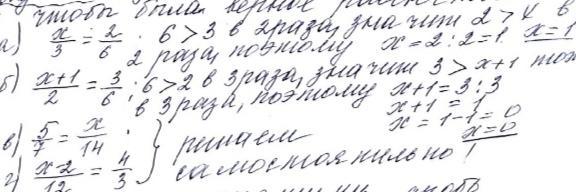 чтобы была верное
а) x/3 = 2/6 ; 6 > 3 в 2 раза, значит 2 > x в
2 раза, поэтому x = 2 : 2 = 1. x = 1
б) x+1/2 = 3/6 ; 6 > 2 в 3 раза, значит 3 > x+1 тоже
в 3 раза, поэтому x+1 = 3 : 3
x+1 = 1
x = 1-1 = 0
x = 0
в) 5/7 = x/14 ; решаем
г) x-2/12 = 4/3 самостоятельно!